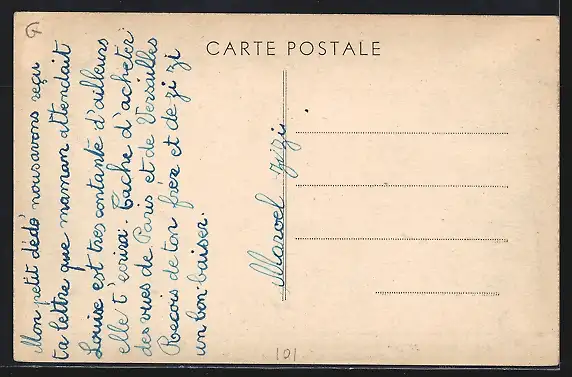 CARTE POSTALE
Mon petit dédé nous avons reçu
ta lettre que maman attendait
Louise est tres contante d'ailleurs
elle t'ecrira. Tache d'acheter
des vues de Paris et de Versailles
Recois de ton frère et de zi zi
un bon baiser.
Marcel zizi
101